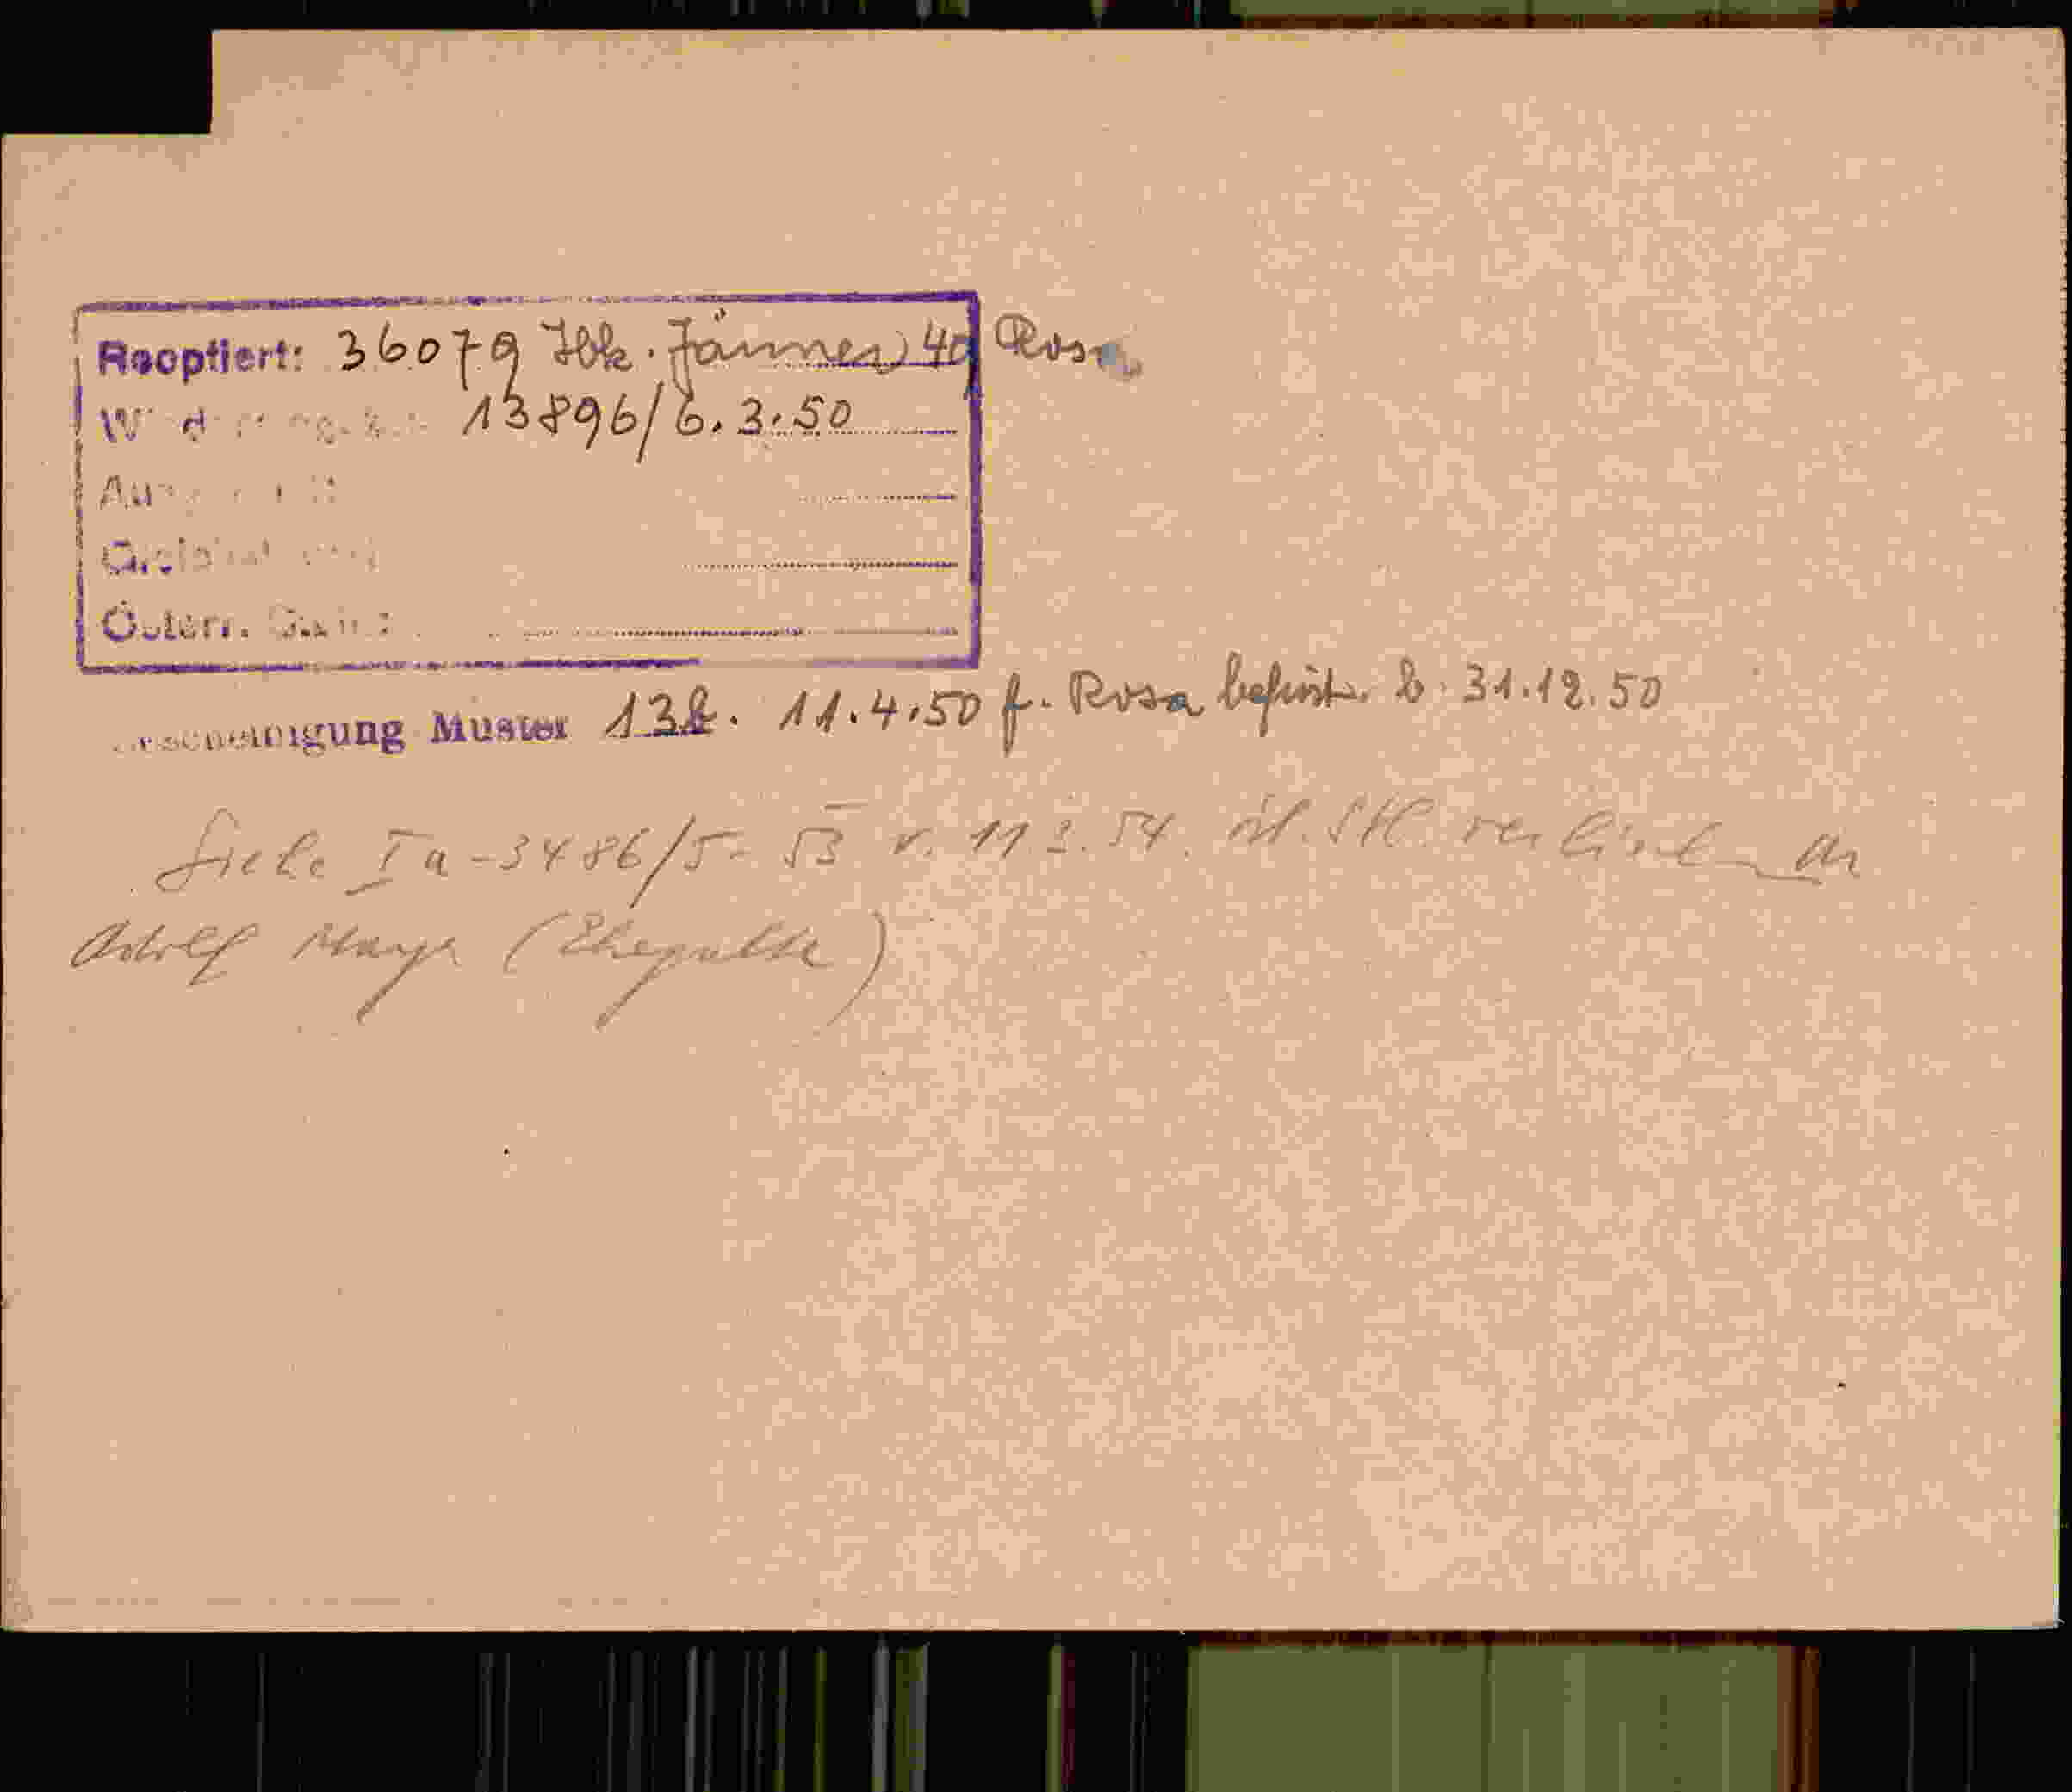 Reoptiert: 36079 Ibk. Jänner 49 Rosa
13896/6.3.50
Österr.
Bescheinigung Muster 13b. 11.4.50 f. Rosa befrist. b. 31.12.50
Siehe Ia-3486/5-53 v. 11.3.54. öst. Stb. verliehen an
Adolf Mayr (Ehegatte)